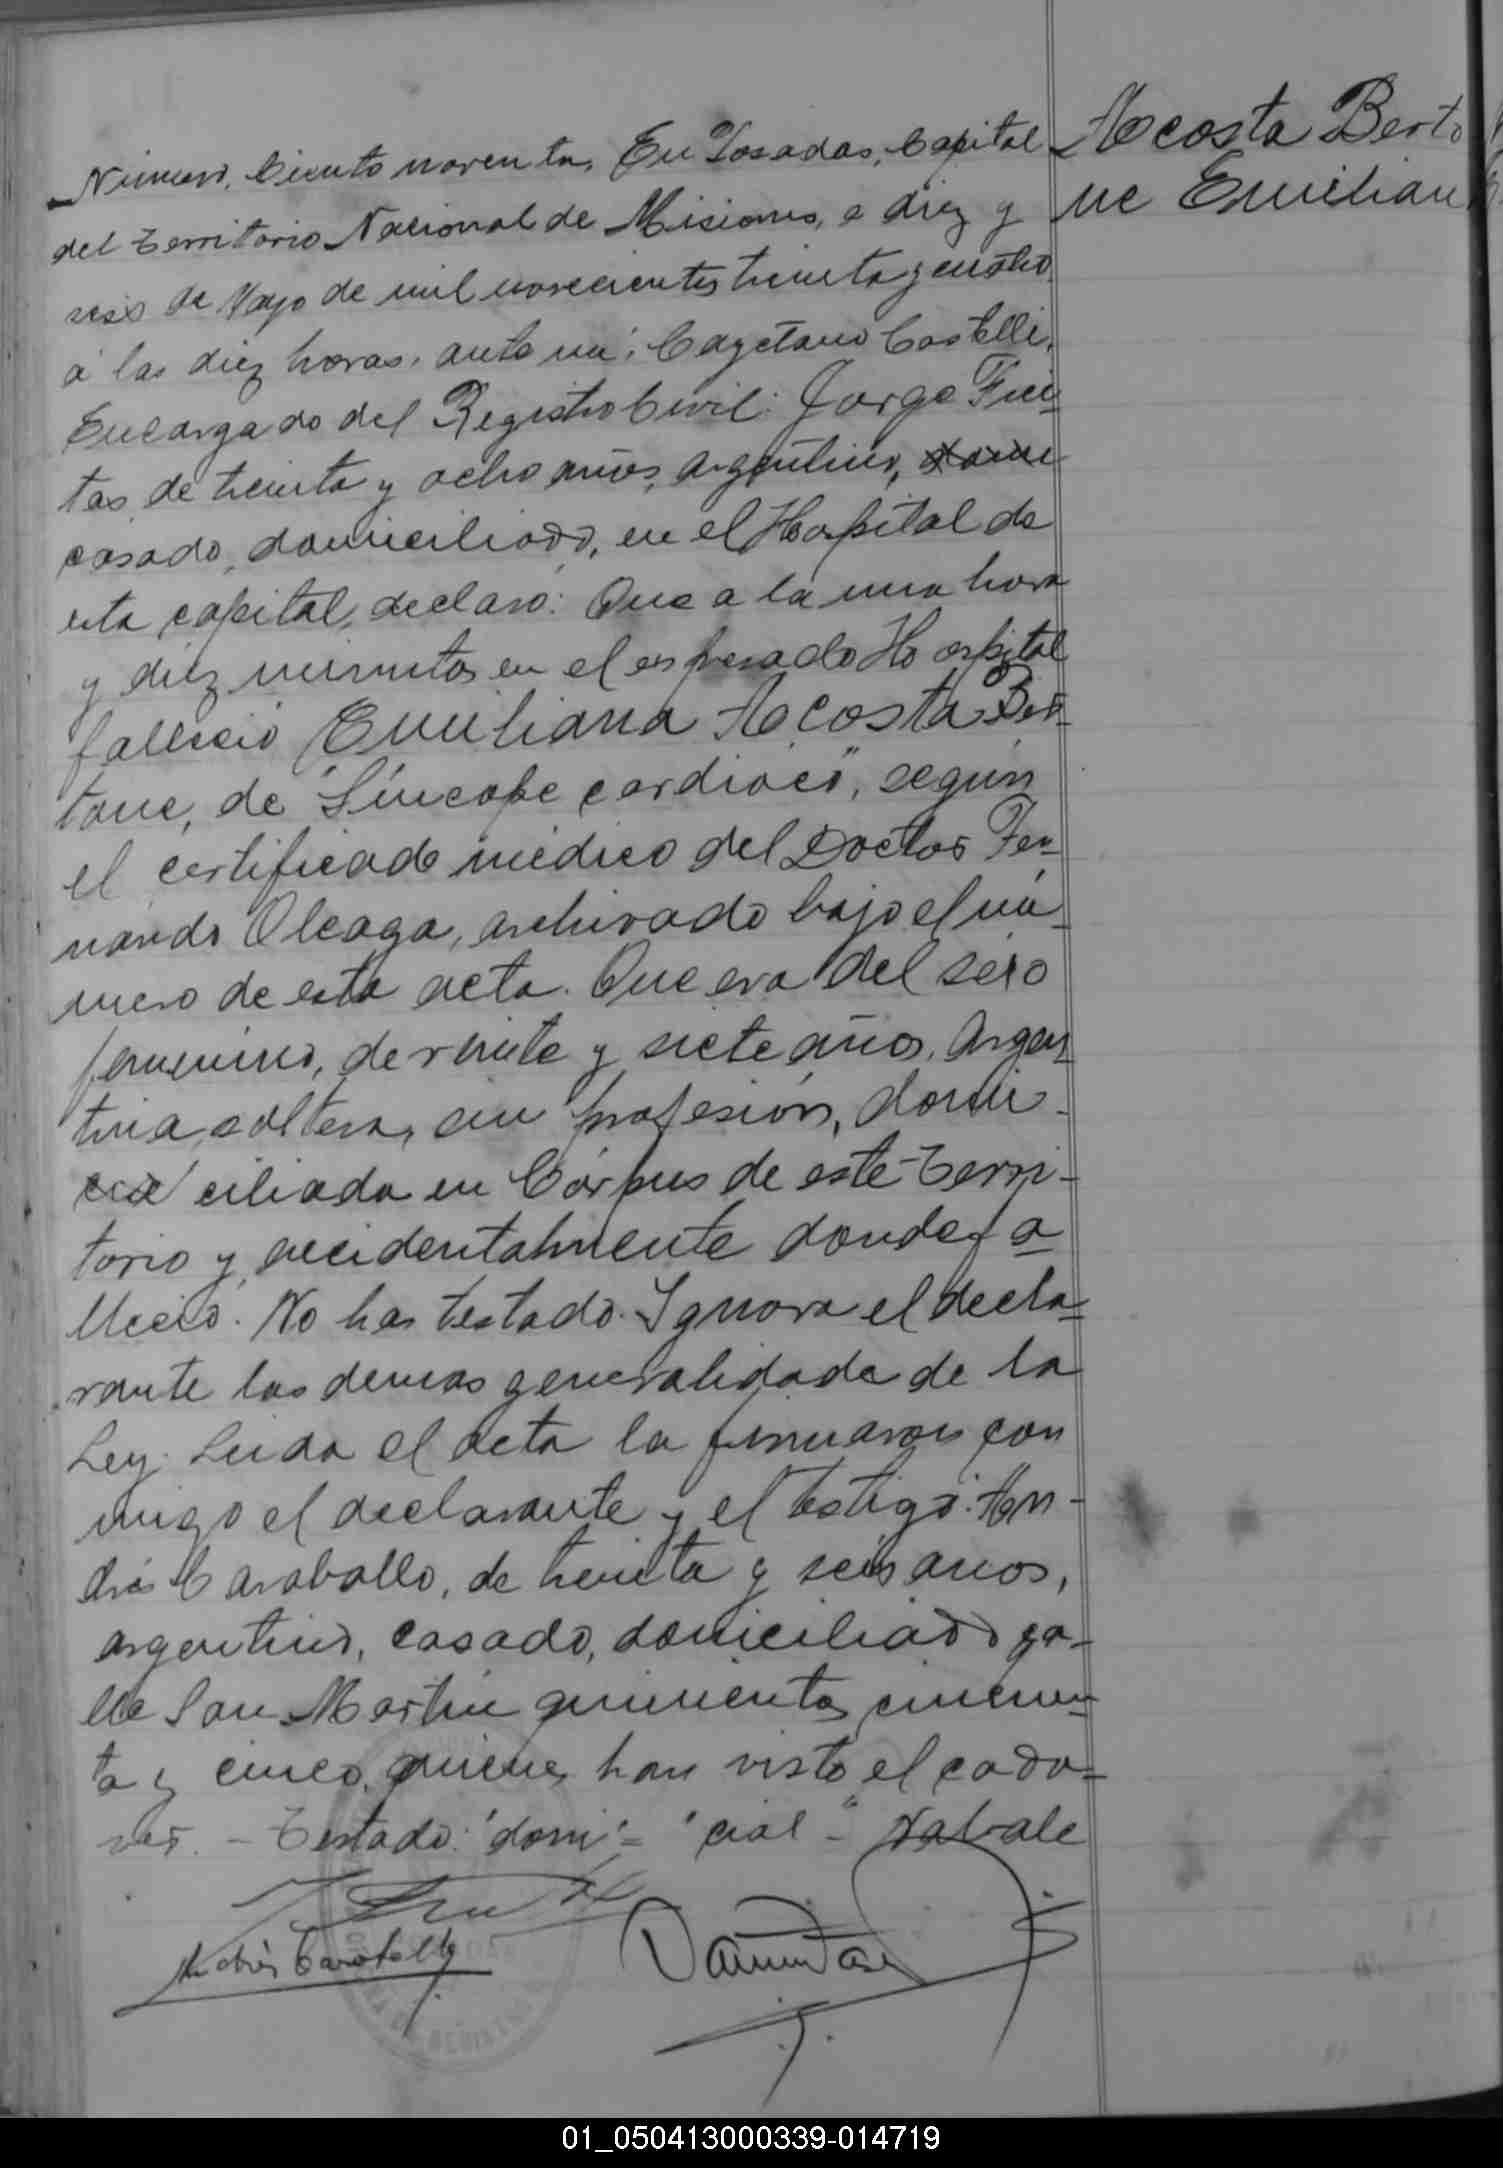 Número, Ciento noventa, En Posadas, Capital
del Territorio Nacional de Misiones, a diez y
seis de Mayo de mil novecientos treinta y cuatro
a las diez horas, ante mi; Cayetano Castelli,
Encargado del Registro Civil: Jorge Frei-
tas, de treinta y ocho años, argentino, domi
casado, domiciliado, en el Hospital de
esta capital, declaró: Que a la una hora
y diez minutos en el expresado Hospital
falleció Emiliana Acosta Ber-
tone, de "Síncope cardiaco", según
el certificado médico del Doctor Fer-
nando Oleaga, archivado bajo el nú-
mero de esta acta. Que era del sexo
femenino, de veinte y siete años, Argen-
tina, soltera, sin profesión, domi-
cia ciliada en Córpus de este Terri-
torio y accidentalmente donde fa-
lleció. No ha testado. Ignora el decla-
rante las demas generalidade de la
Ley. Leida el acta la firmaron con
migo el declarante y el testigo: An-
drés Caraballo, de treinta y seis años,
argentino, casado, domiciliado ca-
lle San Martin quinientos cincuen-
ta y cinco, quienes han visto el cada-
ver. - Testado: "domi" = "cial" - No vale
Andrés Caraballo
Acosta Berto
ne Emilian
01_050413000339-014719